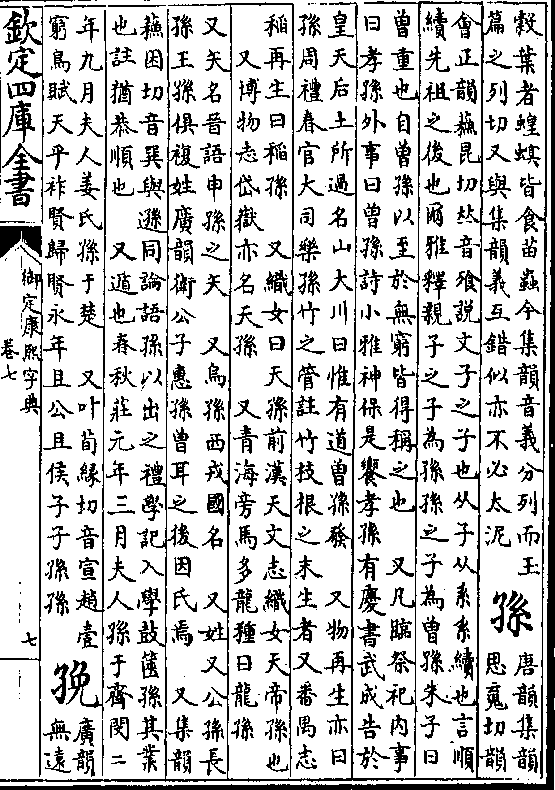 穀葉者蝗螟皆食苗蟲今集韻音義分列而玉
篇之列切又與集韻義互錯似亦不必太泥
孫
唐韻集韻
思䰟切韻
會正韻蘇昆切𠀤音飱說文子之子也从子从系系續也言順
續先祖之後也爾雅釋親子之子為孫孫之子為曾孫朱子曰
曾重也自曾孫以至於無窮皆得稱之也 又凡臨祭祀内事
曰孝孫外事曰曾孫詩小雅神保是饗孝孫有慶書武成告於
皇天后土所過名山大川曰惟有道曾孫發 又物再生亦曰
孫周禮春官大司樂孫竹之管註竹枝根之末生者又番禺志
稻再生曰稻孫 又織女曰天孫前漢天文志織女天帝孫也
又博物志岱嶽亦名天孫 又青海旁馬多龍種曰龍孫
又矢名晉語申孫之矢 又烏孫西戎國名 又姓又公孫長
孫王孫俱複姓廣韻衛公子惠孫曾耳之後因氏焉 又集韻
蘇困切音巽與遜同論語孫以出之禮學記入學鼓篋孫其業
也註猶恭順也 又遁也春秋莊元年三月夫人孫于齊閔二
年九月夫人姜氏孫于楚 又叶荀緣切音宣趙壹
窮鳥賦天乎祚賢歸賢永年且公且侯子子孫孫
㝃
廣韻
無遠
欽定四庫全書
御定康熙字典
卷七
七